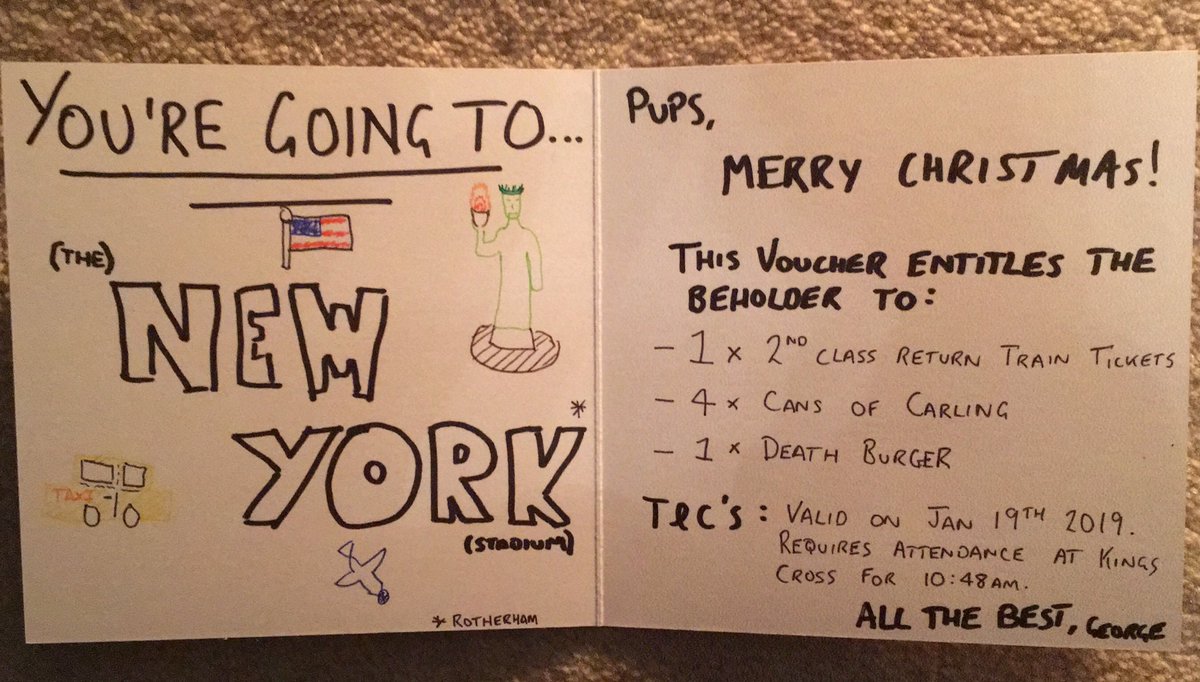 YOU'RE GOING TO...
(THE)
NEW
YORK*
(STADIUM)
TAXI
* ROTHERHAM
PUPS,
MERRY CHRISTMAS!
THIS VOUCHER ENTITLES THE
BEHOLDER TO:
- 1 x 2ND CLASS RETURN TRAIN TICKETS
- 4 x CANS OF CARLING
- 1 x DEATH BURGER
T&C'S: VALID ON JAN 19TH 2019.
REQUIRES ATTENDANCE AT KINGS
CROSS FOR 10:48AM.
ALL THE BEST, GEORGE